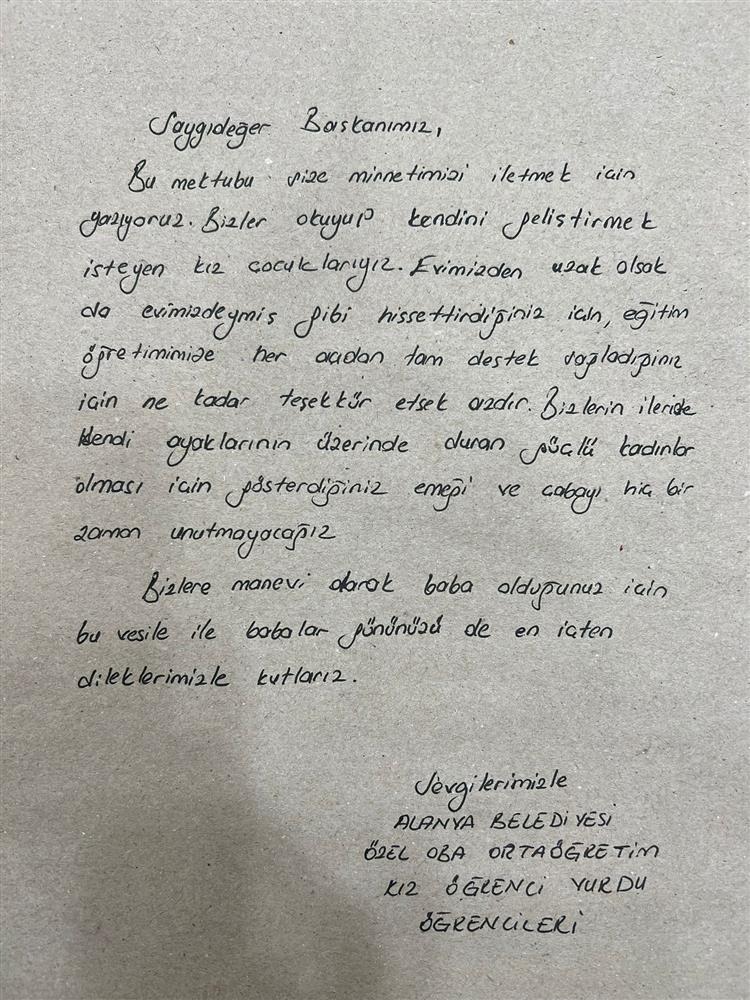 Saygıdeğer Başkanımız,
Bu mektubu size minnetimizi iletmek için
yazıyoruz. Bizler okuyup kendini geliştirmek
isteyen kız çocuklarıyız. Evimizden uzak olsak
da evimizdeymiş gibi hissettirdiğiniz için, eğitim
öğretimimize her açıdan tam destek sağladığınız
için ne kadar teşekkür etsek azdır. Bizlerin ileride
kendi ayaklarının üzerinde duran güçlü kadınlar
olması için gösterdiğiniz emeği ve çabayı hiç bir
zaman unutmayacağız
Bizlere manevi olarak baba olduğunuz için
bu vesile ile babalar gününüzü de en içten
dileklerimizle kutlarız.
Sevgilerimizle
ALANYA BELEDİYESİ
ÖZEL OBA ORTAÖĞRETİM
KIZ ÖĞRENCİ YURDU
ÖĞRENCİLERİ